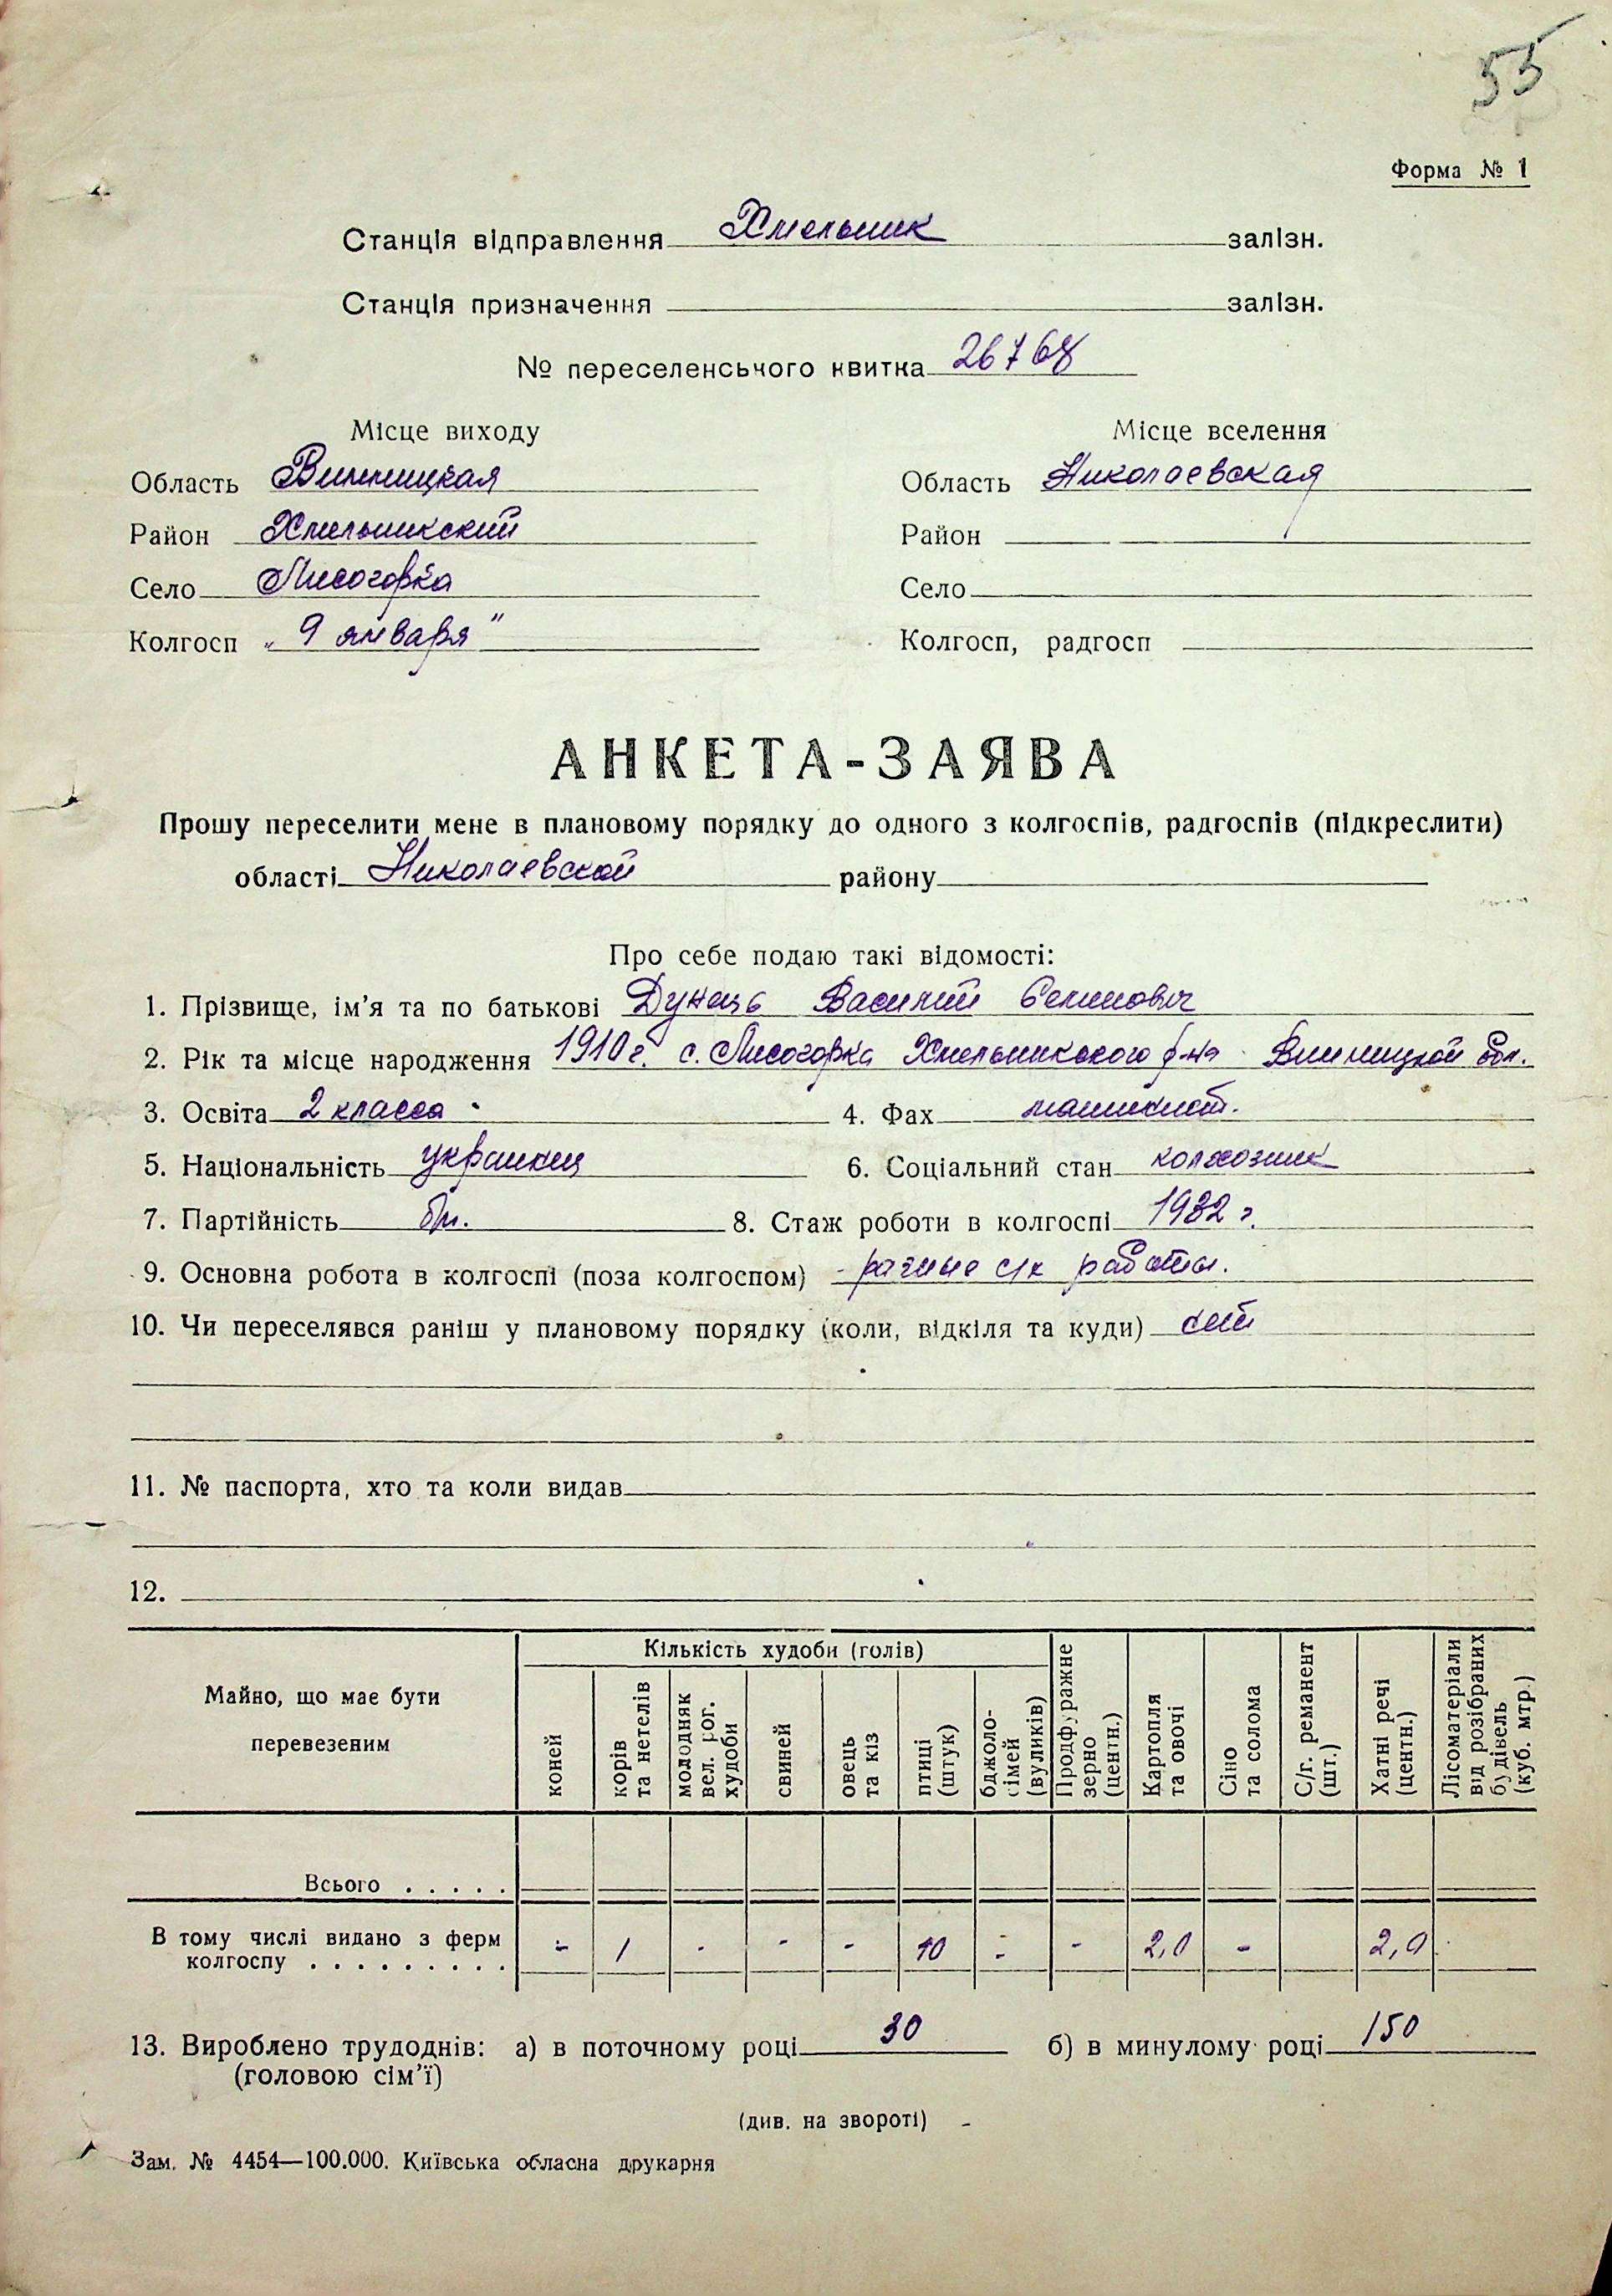 55
Форма № 1
Станція відправлення Хмельник залізн.
Станція призначення залізн.
№ переселенського квитка 26768
Місце виходу Місце вселення
Область Винницкая Область Николаевская
Район Хмельникский Район
Село Лисогорка Село
Колгосп „9 января" Колгосп, радгосп
АНКЕТА-ЗАЯВА
Прошу переселити мене в плановому порядку до одного з колгоспів, радгоспів (підкреслити)
області Николаевской району
Про себе подаю такі відомості:
1. Прізвище, ім'я та по батькові Дунець Василий
2. Рік та місце народження 1910 г. с. Лисогорка Хмельникского р-на Винницкой обл.
3. Освіта 2 класса 4. Фах
5. Національність украинец 6. Соціальний стан колхозник
7. Партійність бп. 8. Стаж роботи в колгоспі 1932 г.
9. Основна робота в колгоспі (поза колгоспом) разные с/х работы.
10. Чи переселявся раніш у плановому порядку (коли, відкіля та куди) нет
11. № паспорта, хто та коли видав
12.
Майно, що має бути перевезеним
Кількість худоби (голів)
коней
корів та нетелів
молодняк вел. рог. худоби
свиней
овець та кіз
птиці (штук)
бджоло-сімей (вуликів)
Продфуражне зерно (центн.)
Картопля та овочі
Сіно та солома
С/г. реманент (шт.)
Хатні речі (центн.)
Лісоматеріали від розібраних будівель (куб. мтр.)
Всього . . . . .
В тому числі видано з ферм
колгоспу . . . . . . . . . - 1 - - - 10 - - 2,0 - 2,0
13. Вироблено трудоднів: а) в поточному році 30 б) в минулому році 150
(головою сім'ї)
(див. на звороті)
Зам. № 4454—100.000. Київська обласна друкарня